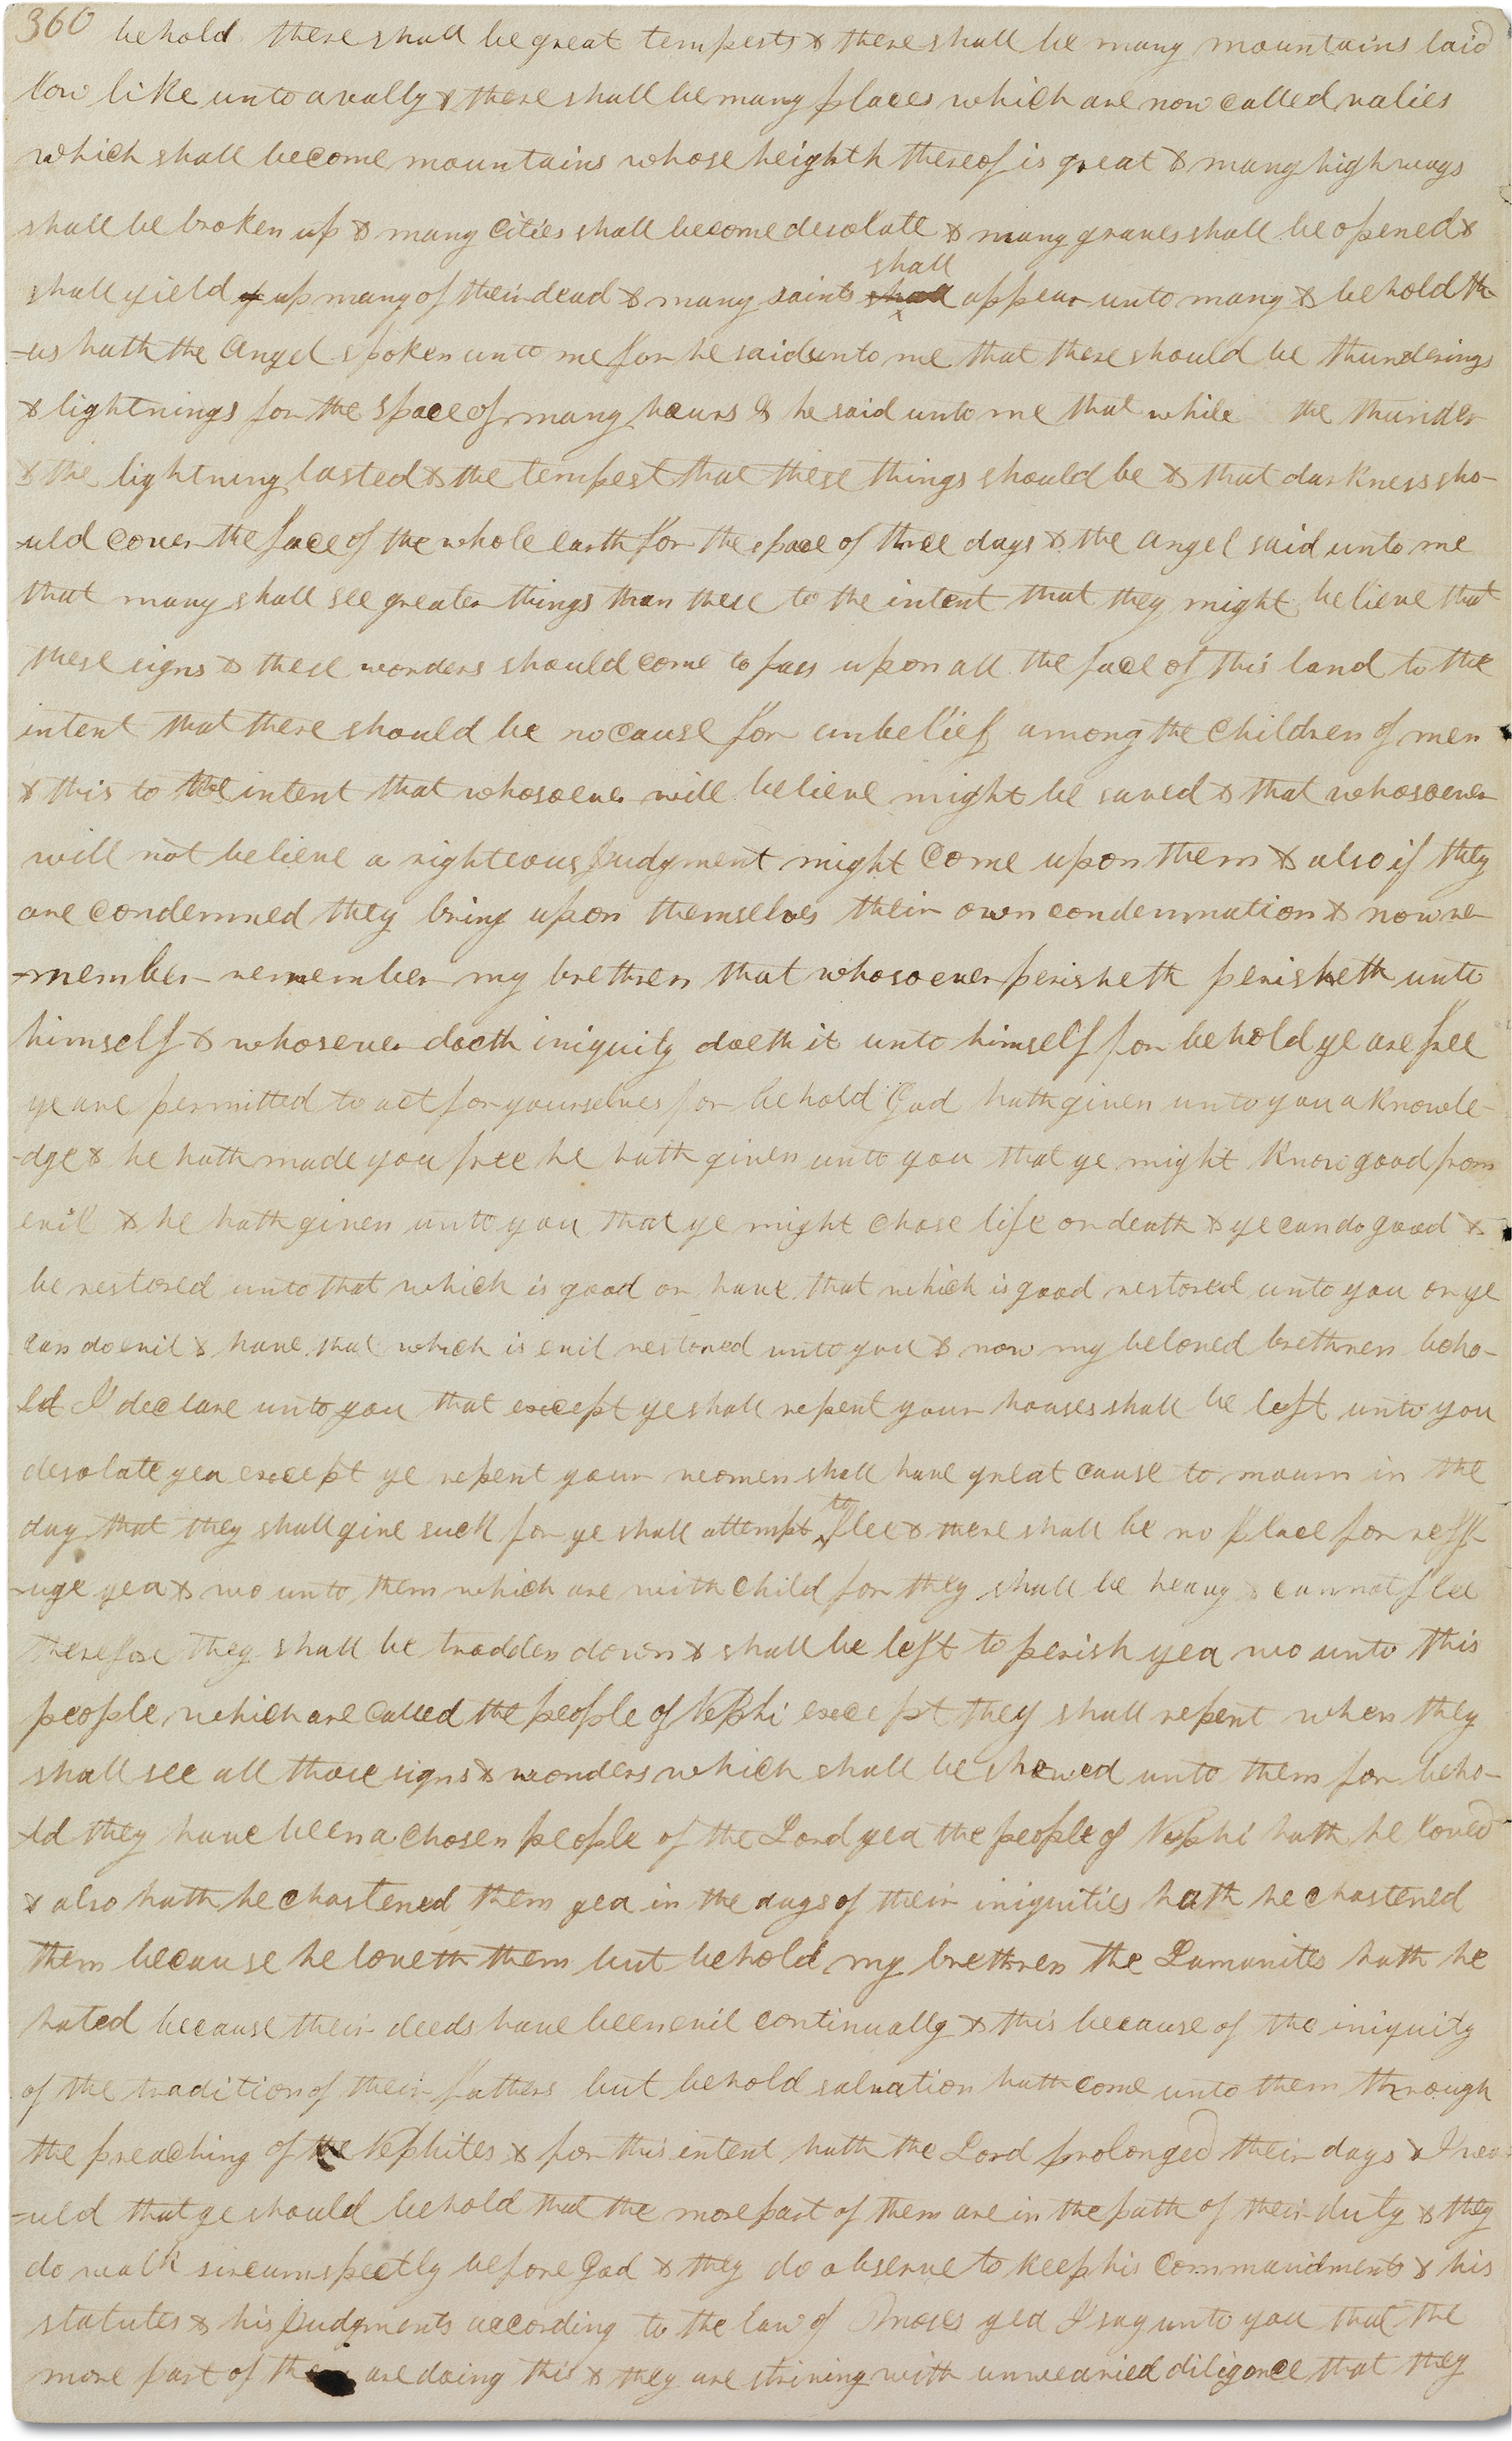 360 behold there shall be great tempests & there shall be many mountains laid
low like unto a vally & there shall be many places which are now called valies
which shall become mountains whose heighth thereof is great & many highways
shall be broken up & many cities shall become desolate & many graves shall be opened &
shall yield up many of their dead & many saints shall appear unto many & behold th
-us hath the Angel spoken unto me for he said unto me that there should be thunderings
& lightnings for the space of many hours & he said unto me that while the thunder
& the lightning lasted & the tempest that these things should be & that darkness sho-
-uld cover the face of the whole earth for the space of three days & the angel said unto me
that many shall see greater things than these to the intent that they might believe that
these signs & these wonders should come to pass upon all the face of this land to the
intent that there should be no cause for unbelief among the children of men
& this to the intent that whosoever will believe might be saved & that whosoever
will not believe a righteous Judgment might come upon them & also if they
are condemned they bring upon themselves their own condemnation & now re
-member remember my brethren that whosoever perisheth perisheth unto
himself & whosever doeth iniquity doeth it unto himself for behold ye are free
ye are permitted to act for yourselves for behold God hath given unto you a knowle-
-dge & he hath made you free he hath given unto you that ye might know good from
evil & he hath given unto you that ye might chose life or death & ye can do good &
be restored unto that which is good or have that which is good restored unto you or ye
can do evil & have that which is evil restored unto you & now my beloved brethren beho-
ld I declare unto you that except ye shall repent your houses shall be left unto you
desolate yea except ye repent your women shall have great cause to mourn in the
day that they shall give suck for ye shall attempt to flee & there shall be no place for reff-
-uge yea & wo unto them which are with child for they shall be heavy & cannot flee
therefore they shall be trodden down & shall be left to perish yea wo unto this
people which are called the people of Nephi except they shall repent when they
shall see all those signs & wonders which shall be shewed unto them for beho-
-ld they have been a chosen people of the Lord yea the people of Nephi hath he loved
& also hath he chastened them yea in the days of their iniquities hath he chastened
them because he loveth them but behold my brethren the Lamanites hath he
hated because their deeds have been evil continually & this because of the iniquity
of the tradition of their fathers but behold salvation hath come unto them through
the preaching of the Nephites & for this intent hath the Lord prolonged their days & I wo-
-uld that ye should behold that the more part of them are in the path of their duty & they
do walk sircumspectly before God & they do observe to keep his commandments & his
statutes & his Judgments according to the law of Moses yea I say unto you that the
more part of them are doing this & they are striving with unwearied diligence that they